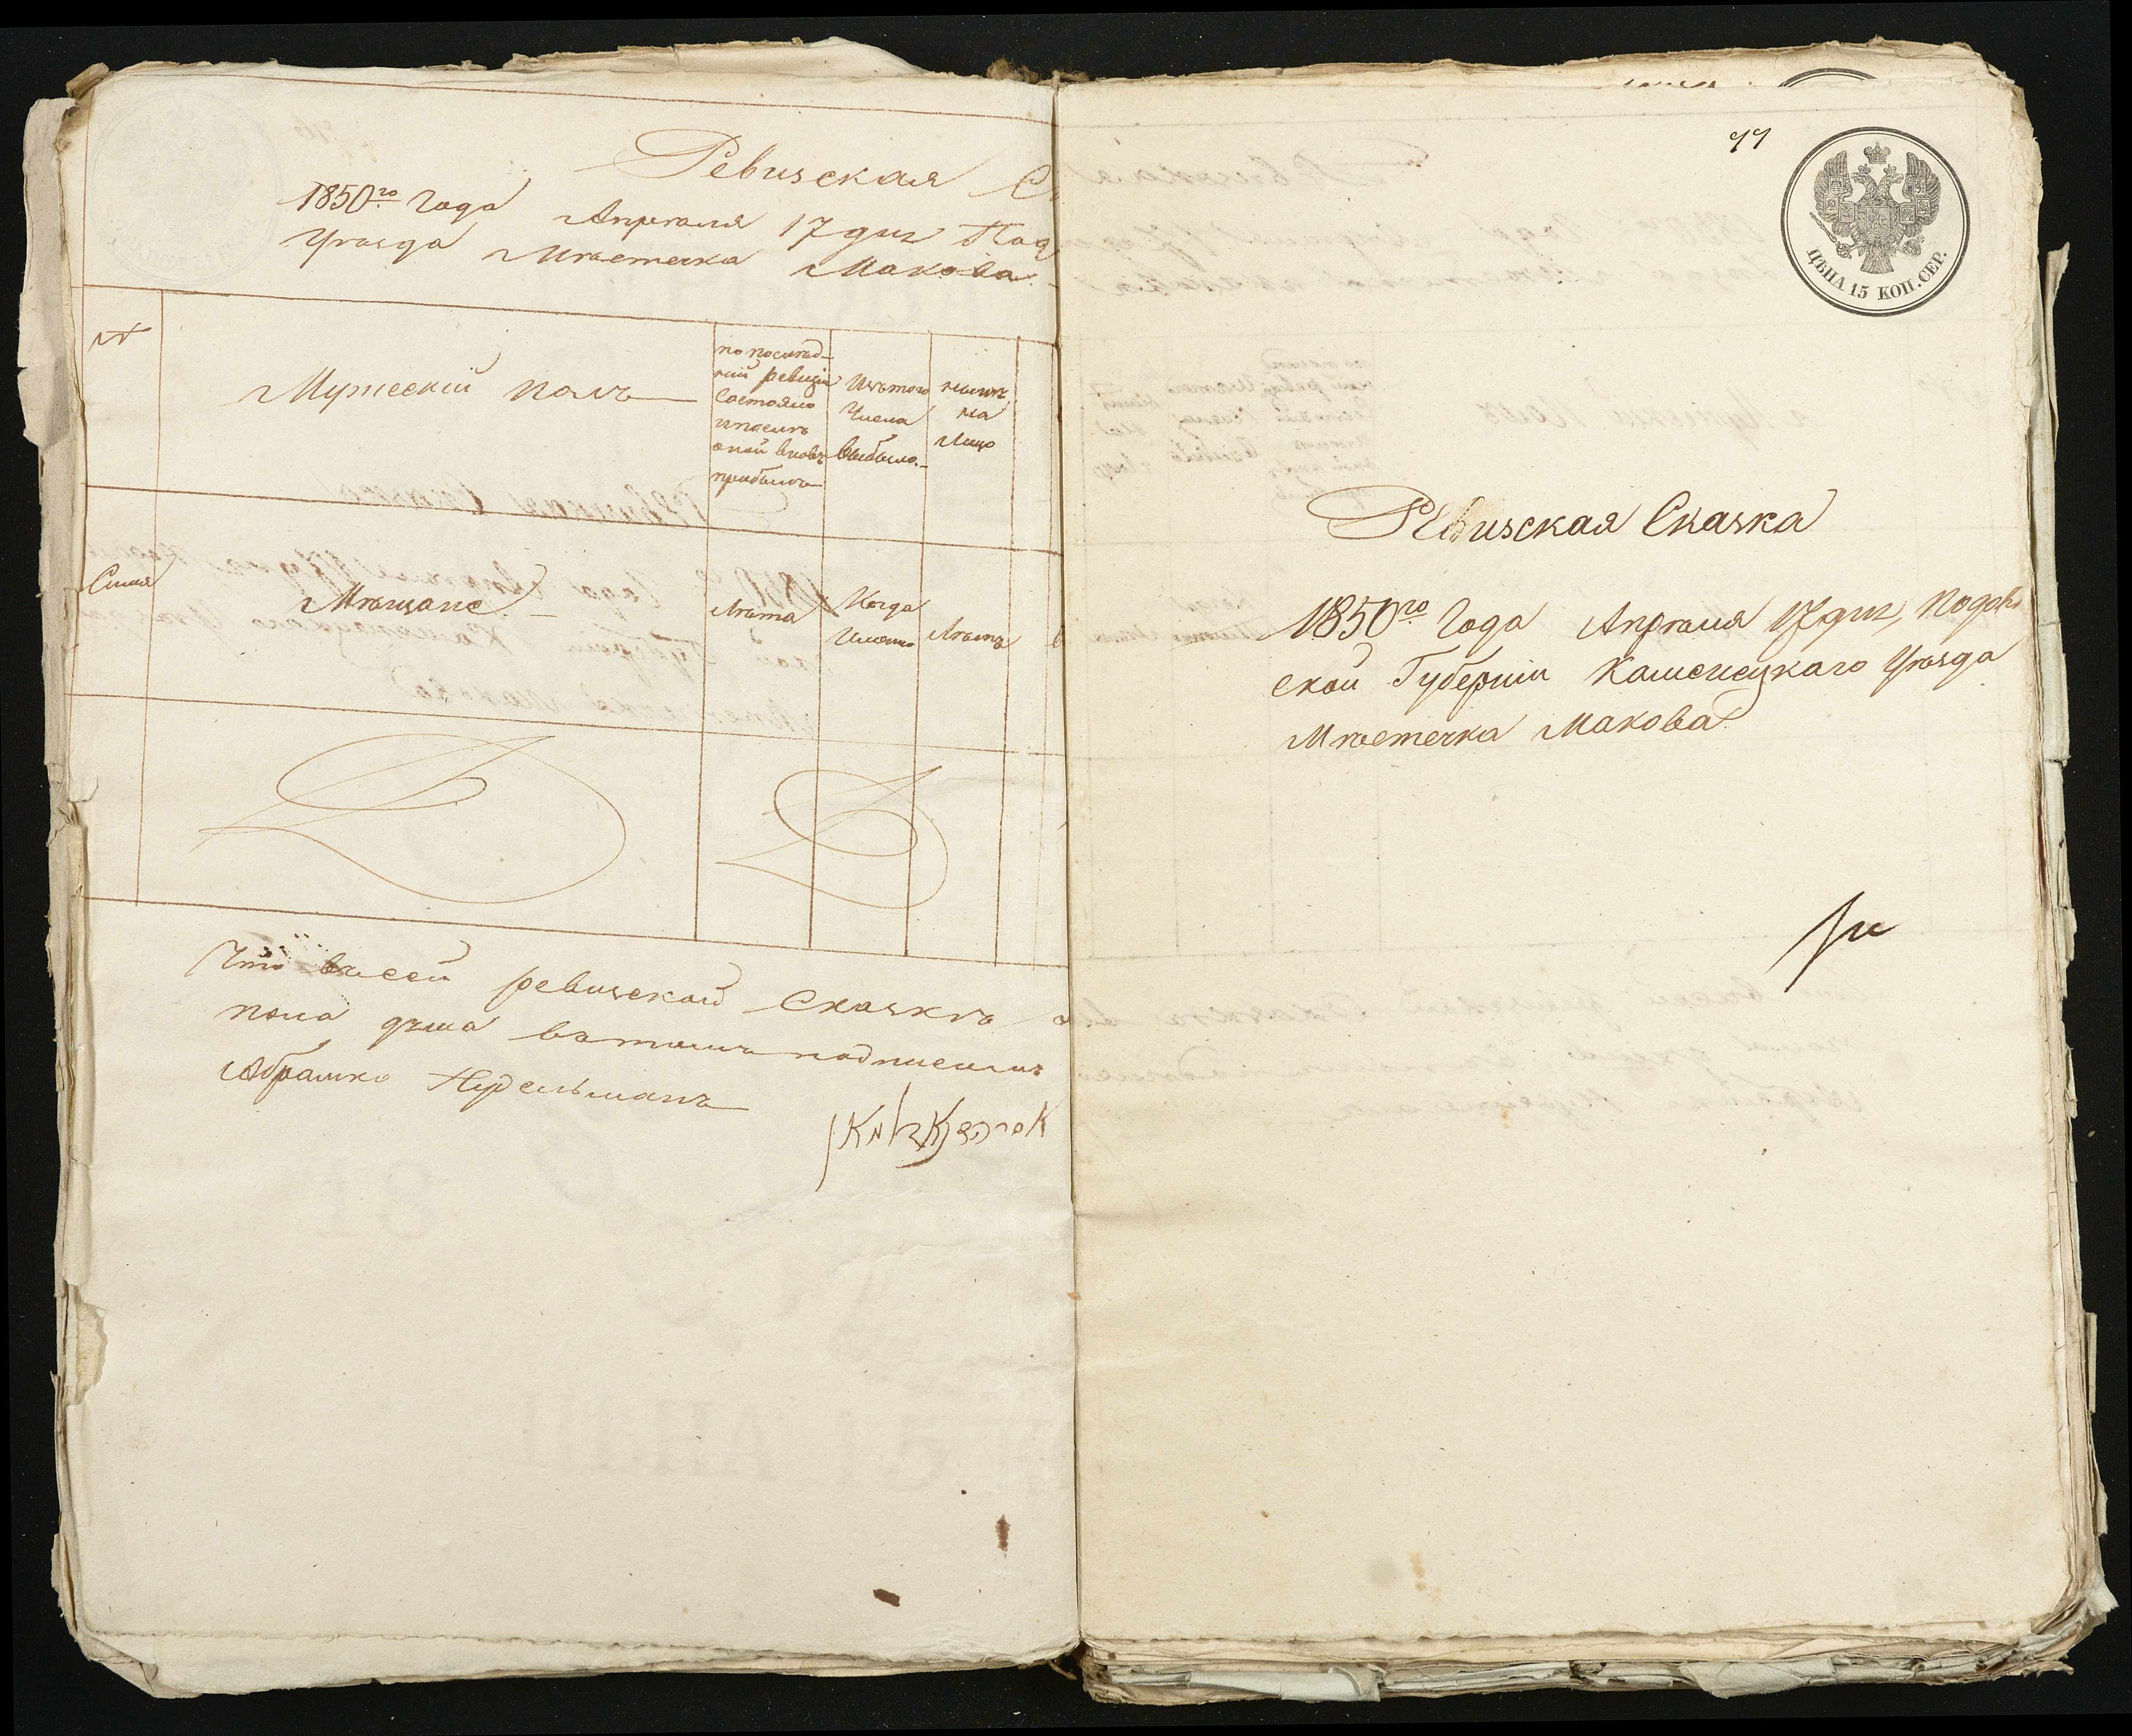 Ревизская С
1850го Года Апрѣля 17 дня Под
Уѣзда Мѣстечка Макова
№
Мужескій полъ
по послѣд-
ней ревизіи
состояло
и послѣ
оной вновь
прибыло
Изъ того
Числа
выбыло
нынѣ
на
лицо
Мѣщане
Лѣта
Когда
именно
Лѣта
Что въ сей ревизской Сказкѣ
пола душа въ томъ подписомъ
Абрамко
77
ЦѢНА 15 КОП. СЕР.
Ревизская Сказка
1850го Года Апрѣля 17 дня, Подоль
ской Губерніи Каменецкаго Уѣзда
Мѣстечка Макова